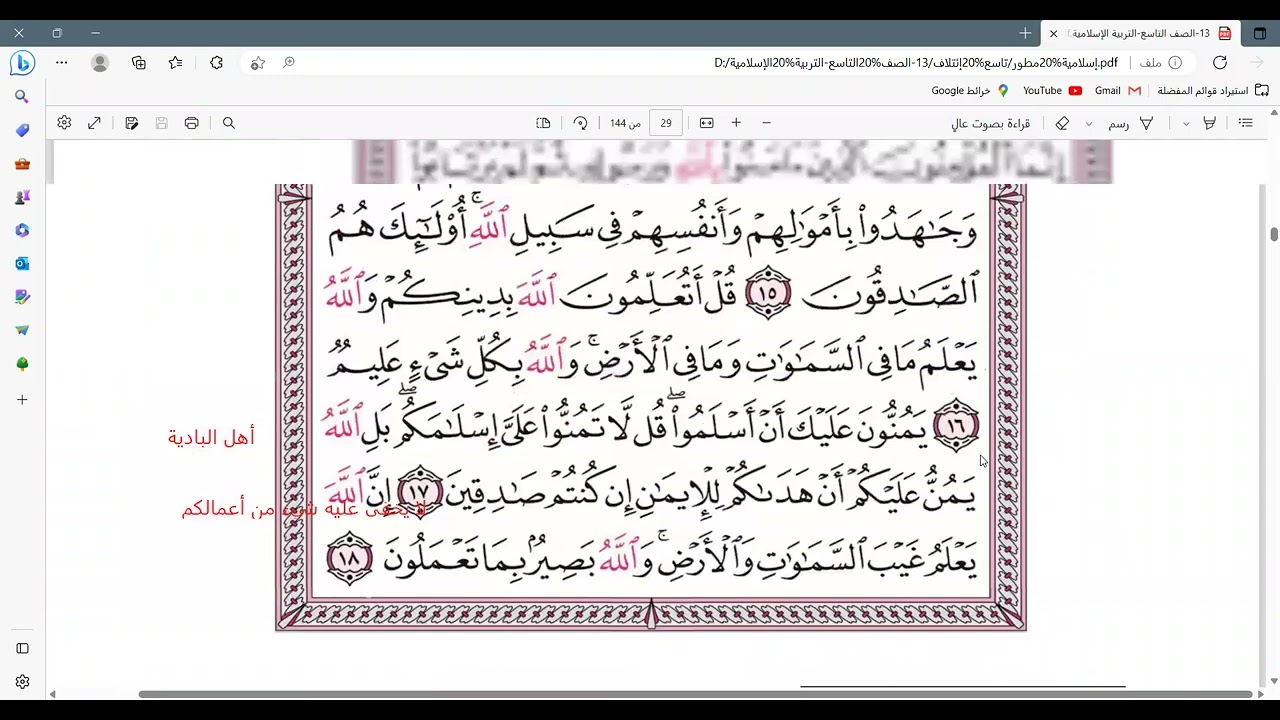 13-الصف التاسع-التربية الإسلامية
ملف
D:/إسلامية%20مطور/تاسع%20إئتلاف/13-الصف%20التاسع-التربية%20الإسلامية.pdf
استيراد قوائم المفضلة Gmail YouTube خرائط Google
قراءة بصوت عالٍ رسم
29 من 144
وَجَـٰهَدُوا۟ بِأَمْوَٰلِهِمْ وَأَنفُسِهِمْ فِى سَبِيلِ ٱللَّهِ ۚ أُو۟لَـٰٓئِكَ هُمُ
ٱلصَّـٰدِقُونَ ١٥ قُلْ أَتُعَلِّمُونَ ٱللَّهَ بِدِينِكُمْ وَٱللَّهُ
يَعْلَمُ مَا فِى ٱلسَّمَـٰوَٰتِ وَمَا فِى ٱلْأَرْضِ ۚ وَٱللَّهُ بِكُلِّ شَىْءٍ عَلِيمٌ
١٦ يَمُنُّونَ عَلَيْكَ أَنْ أَسْلَمُوا۟ ۖ قُل لَّا تَمُنُّوا۟ عَلَىَّ إِسْلَـٰمَكُم ۖ بَلِ ٱللَّهُ
أهل البادية
يَمُنُّ عَلَيْكُمْ أَنْ هَدَىٰكُمْ لِلْإِيمَـٰنِ إِن كُنتُمْ صَـٰدِقِينَ ١٧ إِنَّ ٱللَّهَ
لا يخفى عليه شيء من أعمالكم
يَعْلَمُ غَيْبَ ٱلسَّمَـٰوَٰتِ وَٱلْأَرْضِ ۚ وَٱللَّهُ بَصِيرٌۢ بِمَا تَعْمَلُونَ ١٨